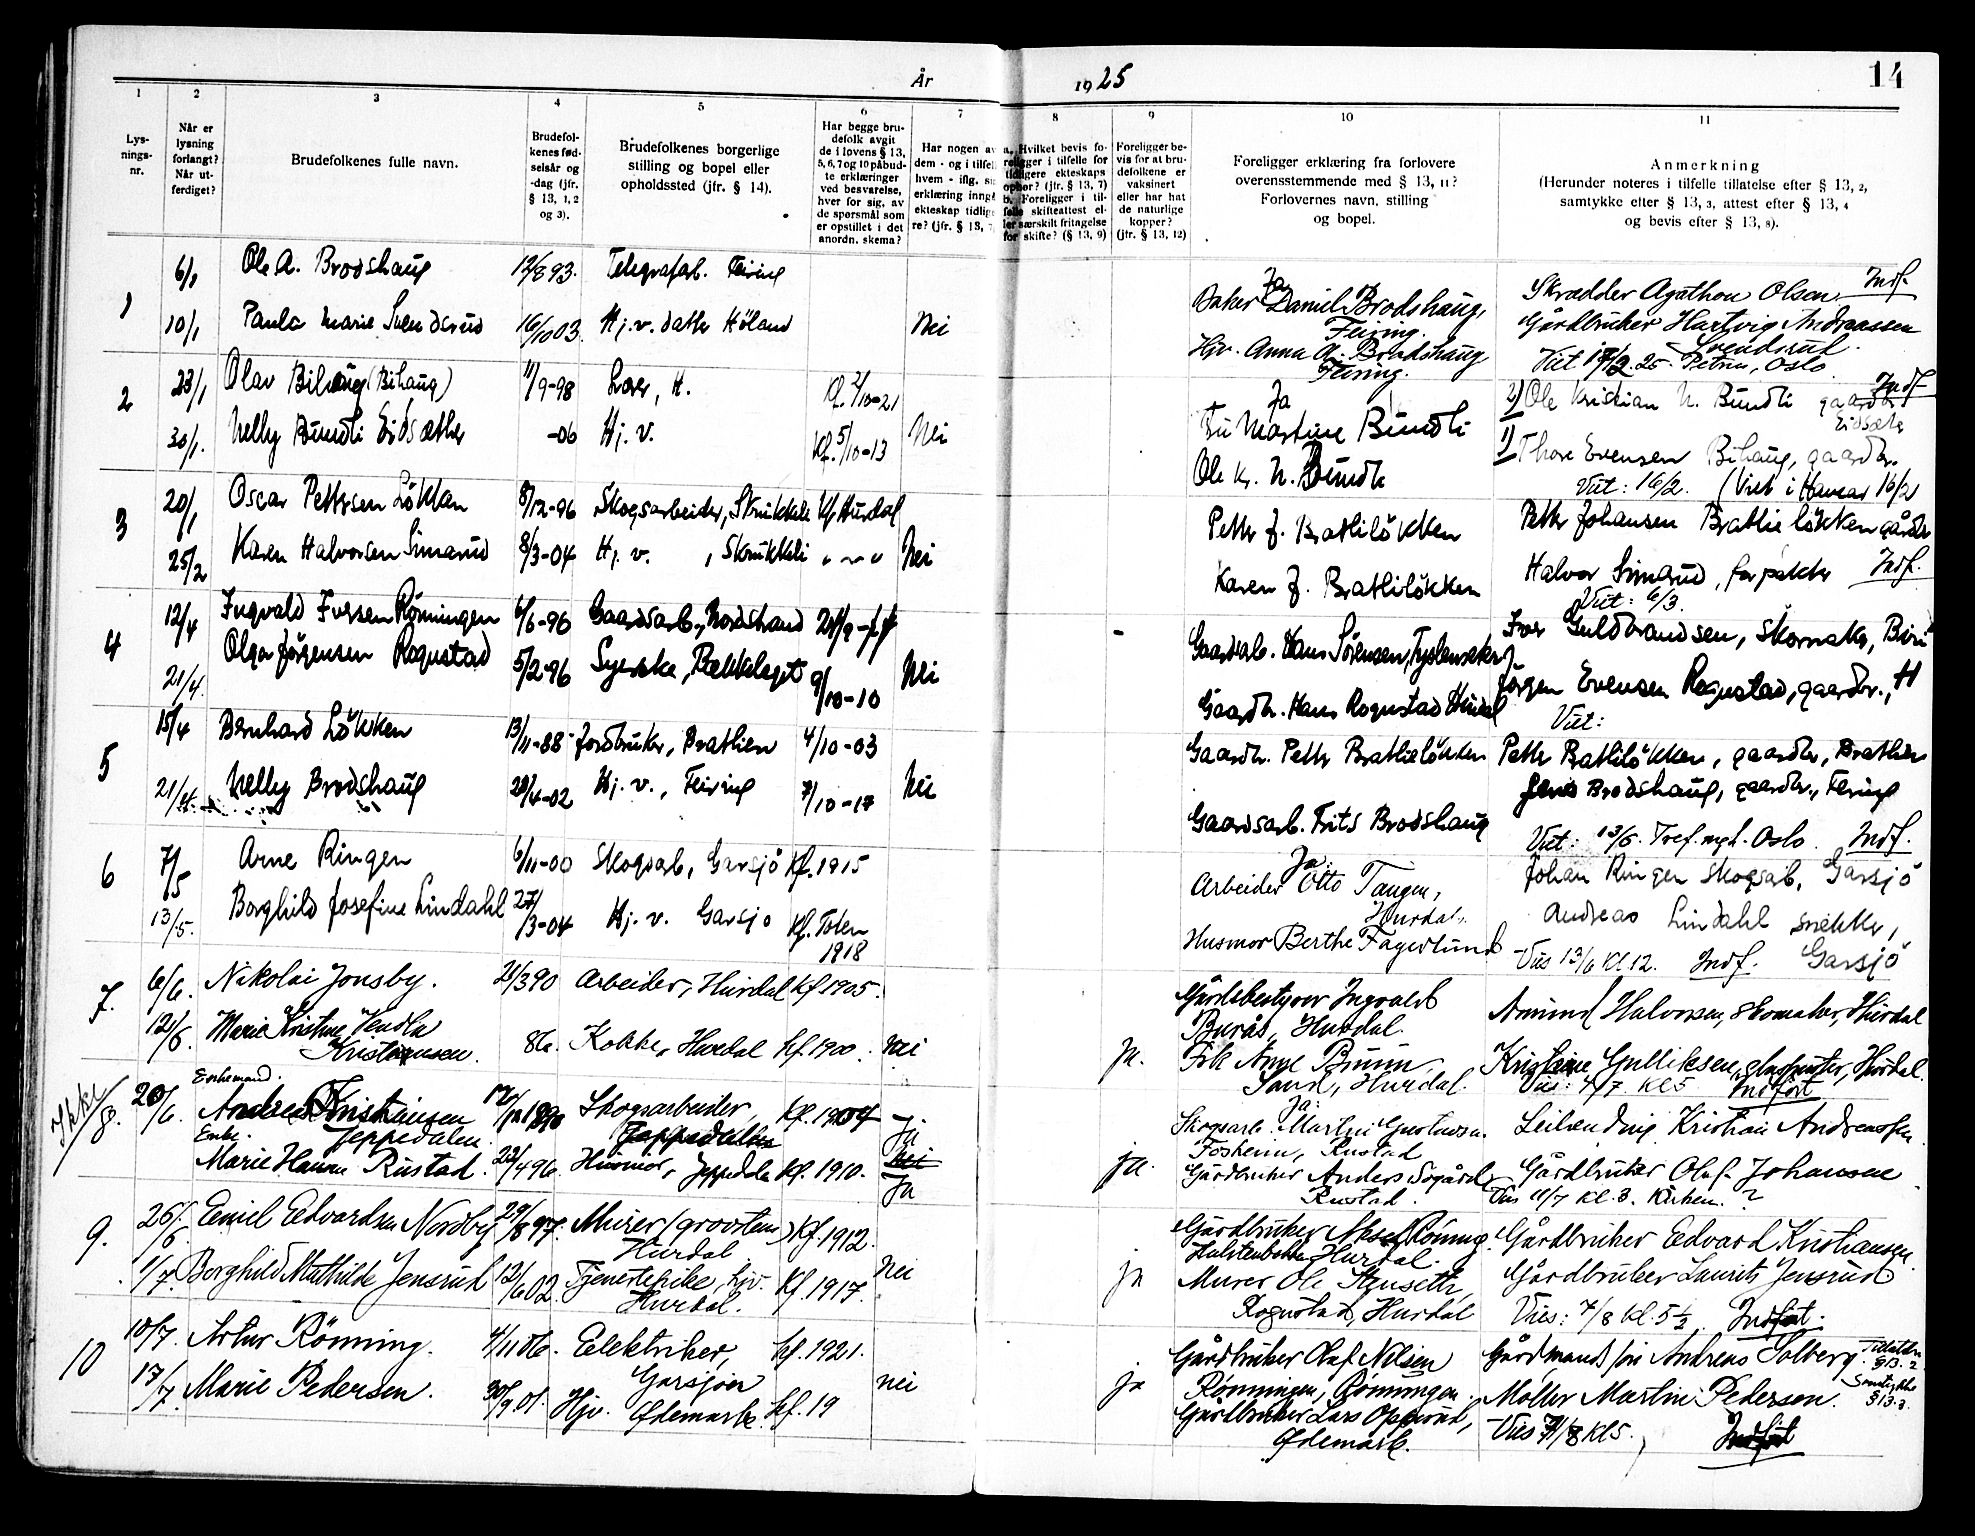 År 1925
14
1 2 3 4 5 6 7 8 9 10 11
Lys-
nings-
nr.
Når er
lysning
forlangt?
Når ut-
ferdiget?
Brudefolkenes fulle navn.
Brudefol-
kenes fød-
selsår og
-dag (jfr.
§ 13, 1, 2
og 3).
Brudefolkenes borgerlige
stilling og bopel eller
opholdssted (jfr. § 14).
Har begge bru-
defolk avgit
de i lovens § 13,
5, 6, 7 og 10 påbud-
te erklæringer
ved besvarelse,
hver for sig, av
de spørsmål som
er opstillet i det
anordn. skema?
Har nogen av
dem - og i tilfel
hvem - iflg. si
erklæring inngå
ekteskap tidlige
re? (jfr. § 13, 7
a. Hvilket bevis fo-
religger i tilfelle for
tidligere ekteskaps
ophør? (jfr. § 13, 7)
b. Foreligger i til-
felle skifteattest el-
ler særskilt fritagelse
for skifte? (§ 13, 9)
Foreligger be-
vis for at bru-
defolkene er
vaksinert
eller har hat
de naturlige
kopper?
(jfr. § 13, 12)
Foreligger erklæring fra forlovere
overensstemmende med § 13, 11?
Forlovernes navn, stilling
og bopel.
Anmerkning
(Herunder noteres i tilfelle tillatelse efter § 13, 2,
samtykke efter § 13, 3, attest efter § 13, 4
og bevis efter § 13, 8).
1 6/1 Ole A. Brodshaug 12/8 93. Telegrafarb. Feiring
Ja
Daniel Brodshaug,
Feiring.
Skrædder Agathon Olsen Indf.
10/1 Paula Marie Svendsrud 16/10 03. Hj. v. datter Höland Nei
Hjv. Anna A. Brodshaug
Feiring.
Gårdbruker Hartvig Andreassen
Svendsrud.
Viet 17/2 25 - Petrus, Oslo
2 23/1 Olav Bihaug (Bihaug) 11/9-98 H. Kf. 2/10-21
Ja
Fru Martine Bundli
2) Ole Kristian N. Bundli gaardbr. Indf
Eidsæter
30/1. Nelly Bundli Eidsæther -06 Hj. v. Kf. 5/10-13 Nei
Ole Kr. N. Bundli
1) Thore Evensen Bihaug, gaardbr.
Viet: 16/2. (Viet i Havnar 16/2
3 20/1 Oscar Pettersen Lökken 8/12-96 Skogsarbeider, Skrukkeli Kf Hurdal
Petter J. Brathliløkken
Petter Johansen Brathlieløkken gårdbr
25/2 Karen Halvorsen Simarud 8/3-04 Hj. v. , Skrukkeli " — " Nei
Karen J. Brathliløkken
Halvor Simarud, forpakter Indf.
Viet: 6/3.
4 12/4 Ingvald Iversen Rönningen 6/6-96 Gaardsarb., Nordstrand
- Gaardsarb. Hans Sörensen,
Iver Guldbrandsen, Skomaker, Biri
21/4. Olga Jörgensen Rognstad 5/2-96 Syerske, Bækkelaget 9/10-10 Nei
Gaardbr. Hans Rognstad Hurdal
Jörgen Evensen Rognstad, gaardbr., H
Viet:
5 15/4 Bernhard Lökken 13/11-88 Jordbruker, Brathlien 4/10-03
Gaardbr. Petter Brathlieløkken
Petter Bathliløkken, gaardbr, Brathlien
21/4. Nelly Brodshaug 28/4-02 Hj. v., Feiring 7/10-17 Nei
Gaardsarb. Frits Brodshaug
Jens Brodshaug, gaardbr., Feiring
Viet: 13/5. Tref. mgh. Oslo. Indf.
6 7/5 Arne Ringen 6/11-00 Skogsarb, Garsjö Kf. 1915
Ja:
Arbeider Otto Tangen,
Hurdal.
Johan Ringen Skogsarb. Garsjö
13/5. Borghild Josefine Lindahl 27/3-04 Hj. v. Garsjö Kf. Toten
1918
Husmor Berthe Fagerlund
Andreas Lindahl snekker,
Garsjö
Vies 13/6 Kl 12. Indf.
7. 6/6. Nikolai Jonsby. 21/3 90 Arbeider, Hurdal Kf 1905.
Gårdsbestyrer Ingvald
Burås, Hurdal.
Amund Halvorsen, Skomaker, Hurdal
12/6. Marie Kristine Vendla
Kristiansen. 86. Kokke, Hurdal Kf. 1900. nei
ja. Frk Anne Bruun,
Sand, Hurdal.
Kristiane Gulliksen, Hurdal.
Vies: 4/7 Kl 5 Indført
Ikke/ 8. 20/6. Enkemand.
Andreas Kristiansen
Jeppedalen. 17/12 1890 Skogsarbeider,
Jeppedalen Kf. 1904 Ja
Ja:
Skogsarb. Martin Gustavsen.
Fosheim, Rustad
Leilending Kristian Andreassen
Enke.
Marie Hanna Rustad. 23/4 96. Husmor, Jeppedalen Kf. 1910. nei
Ja
ja. Gårdbruker Anders Sogård
Rustad.
Gårdbruker Olaf Johansen
Vies 11/7 Kl. 3. Kirken. ?
9. 26/6 Emil Edvardsen Nordby 29/8 97. Murer (grovsten)
Hurdal Kf. 1912.
Gårdbruker Aksel Rønning.
Hurdal.
Gårdbruker Edvard Kristiansen
1/7. Borghild Mathilde Jensrud 12/6 02. Tjenestepike, hjv.
Hurdal. Kf. 1917. nei
ja Murer Ole Stenseth,
Rognstad, Hurdal
Gårdbruker Laurits Jensrud
Vies: 7/8 Kl. 5 1/2. Indført.
10 10/7. Artur Rønning. 4/11 06. Elektriker,
Garsjøen Kf. 1921.
Gårdbruker Olaf Nilsen
Rønningen, Rønningen.
Gårdmands/in Andreas Solberg. Tillatelse
§ 13. 2
17/7. Marie Pedersen. 30/9 01. Hjv. Ødemark. Kf. 19 nei
ja Gårdbruker Lars Opperud,
Ødemark.
Møller Martin Pedersen. Samtykke
§ 13. 3.
Vies 1/8 Kl 5. Indført